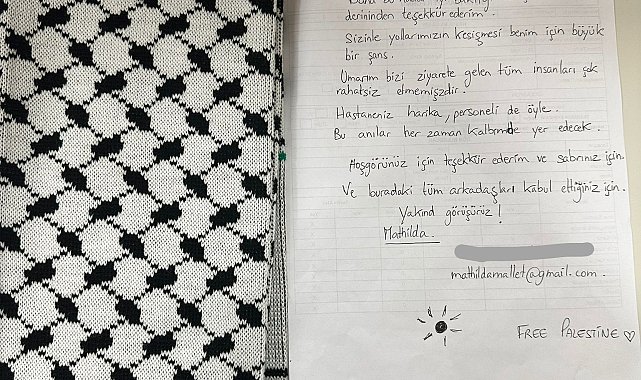 derininden teşekkür ederim.
Sizinle yollarımızın kesişmesi benim için büyük
bir şans.
Umarım bizi ziyarete gelen tüm insanları çok
rahatsız etmemişzdir.
Hastaneniz harika, personeli de öyle.
Bu anılar her zaman kalbımde yer edecek.
Hoşgörünüz için teşekkür ederim ve sabrınız için.
Ve buradaki tüm arkadaşları kabul ettiğiniz için.
Yakınd görüşürüz!
Mathilda.
mathildamallet@gmail.com.
FREE PALESTINE